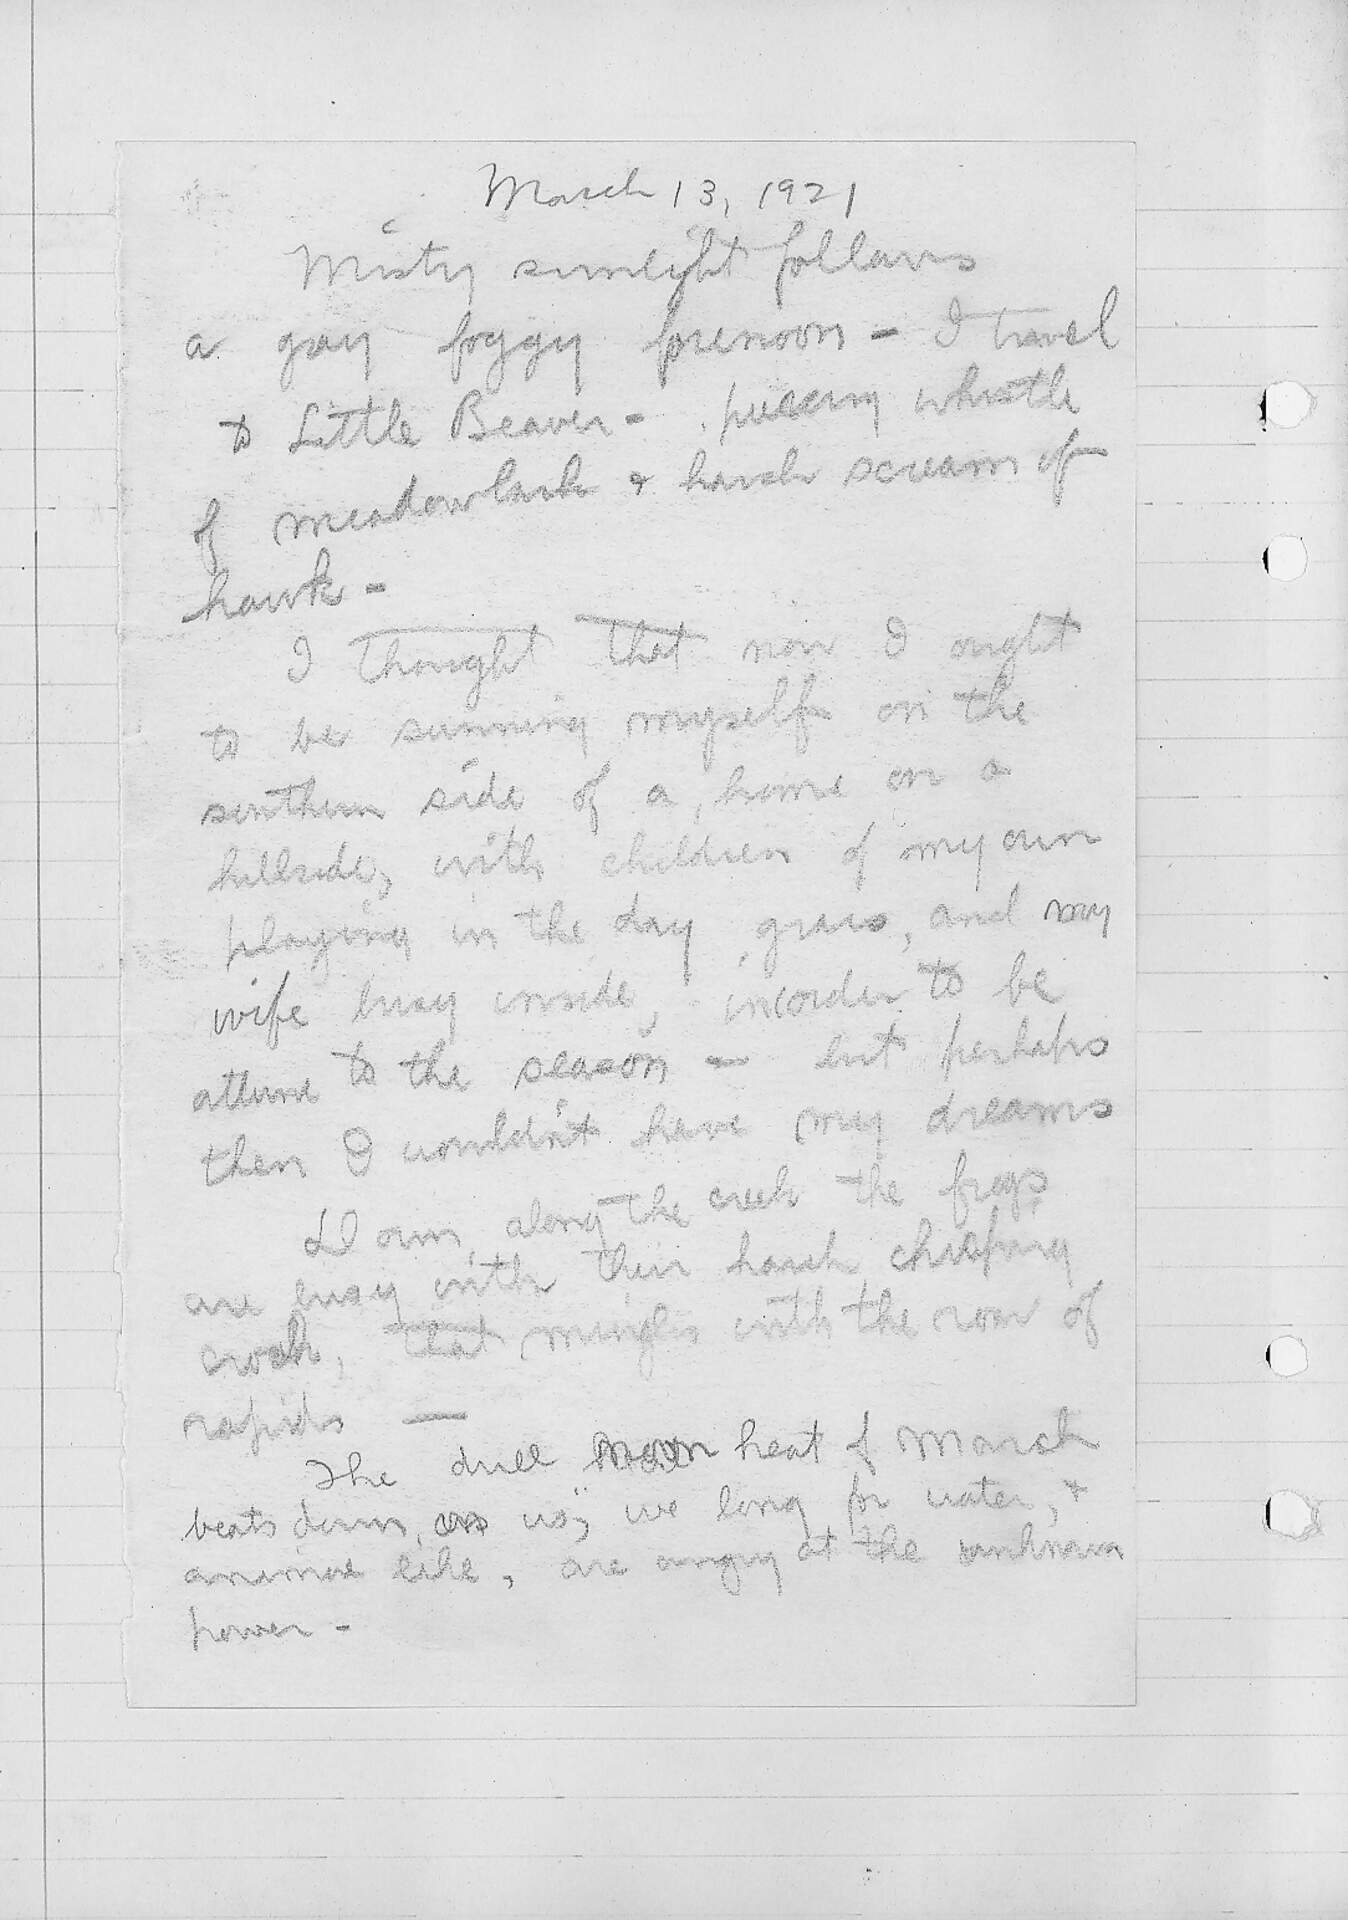 March 13, 1921
Misty sunlight follows
a gray foggy forenoon - I travel
to Little Beaver - piercing whistle
of meadowlark + harsh scream of
hawk -
I thought that now I ought
to be sunning myself on the
southern side of a home on a
hillside, with children of my own
playing in the day grass, and my
wife busy inside, in order to be
attune to the season - but perhaps
then I wouldn't have my dreams
Down along the creek the frogs
are busy with their harsh chirping
croak, that mingles with the roar of
rapids —
The dull noon heat of March
beats down on us; we long for water, +
animal like, are angry at the unknown
power -